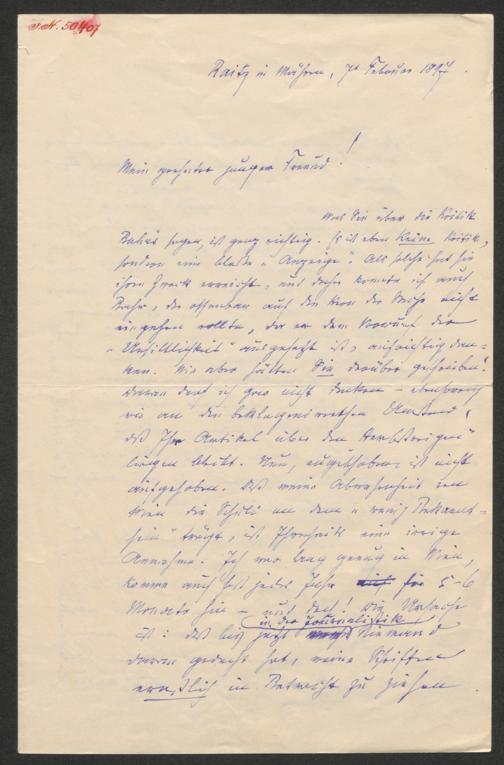 J.N. 50407
Raitz in Mähren, 7t Februar 1897.
Mein geehrter junger Freund!
Was Sie über die Kritik
Bahrs sagen, ist ganz richtig. Es ist eben keine Kritik,
sondern eine bloße „Anzeige“. Als solche hat sie
ihren Zweck erreicht, und daher konnte ich auch
Bahr, der offenbar auf den Kern der Sache nicht
eingehen wollte, da er dem Vorwurf der
„Unsittlichkeit“ ausgesetzt ist, aufrichtig dan-
ken. Wie aber hätten Sie darüber geschrieben!
Daran darf ich gar nicht denken – ebensowenig
wie an den beklagenswerthen Umstand,
daß Ihr Artikel über den Herbstreigen
liegen bleibt. Nun, aufgeschoben ist nicht
aufgehoben. Daß meine Abwesenheit von
Wien die Schuld an dem „wenig Bekannt-
sein“ trägt, ist Ihrerseits eine irrige
Annahme. Ich war lang genug in Wien,
komme auch fast jedes Jahr für 5-6
Monate hin – und doch! Die Ursache
in der Journalistik
ist: daß bis jetzt Niemand
daran gedacht hat, meine Schriften
ernstlich in Betracht zu ziehen.